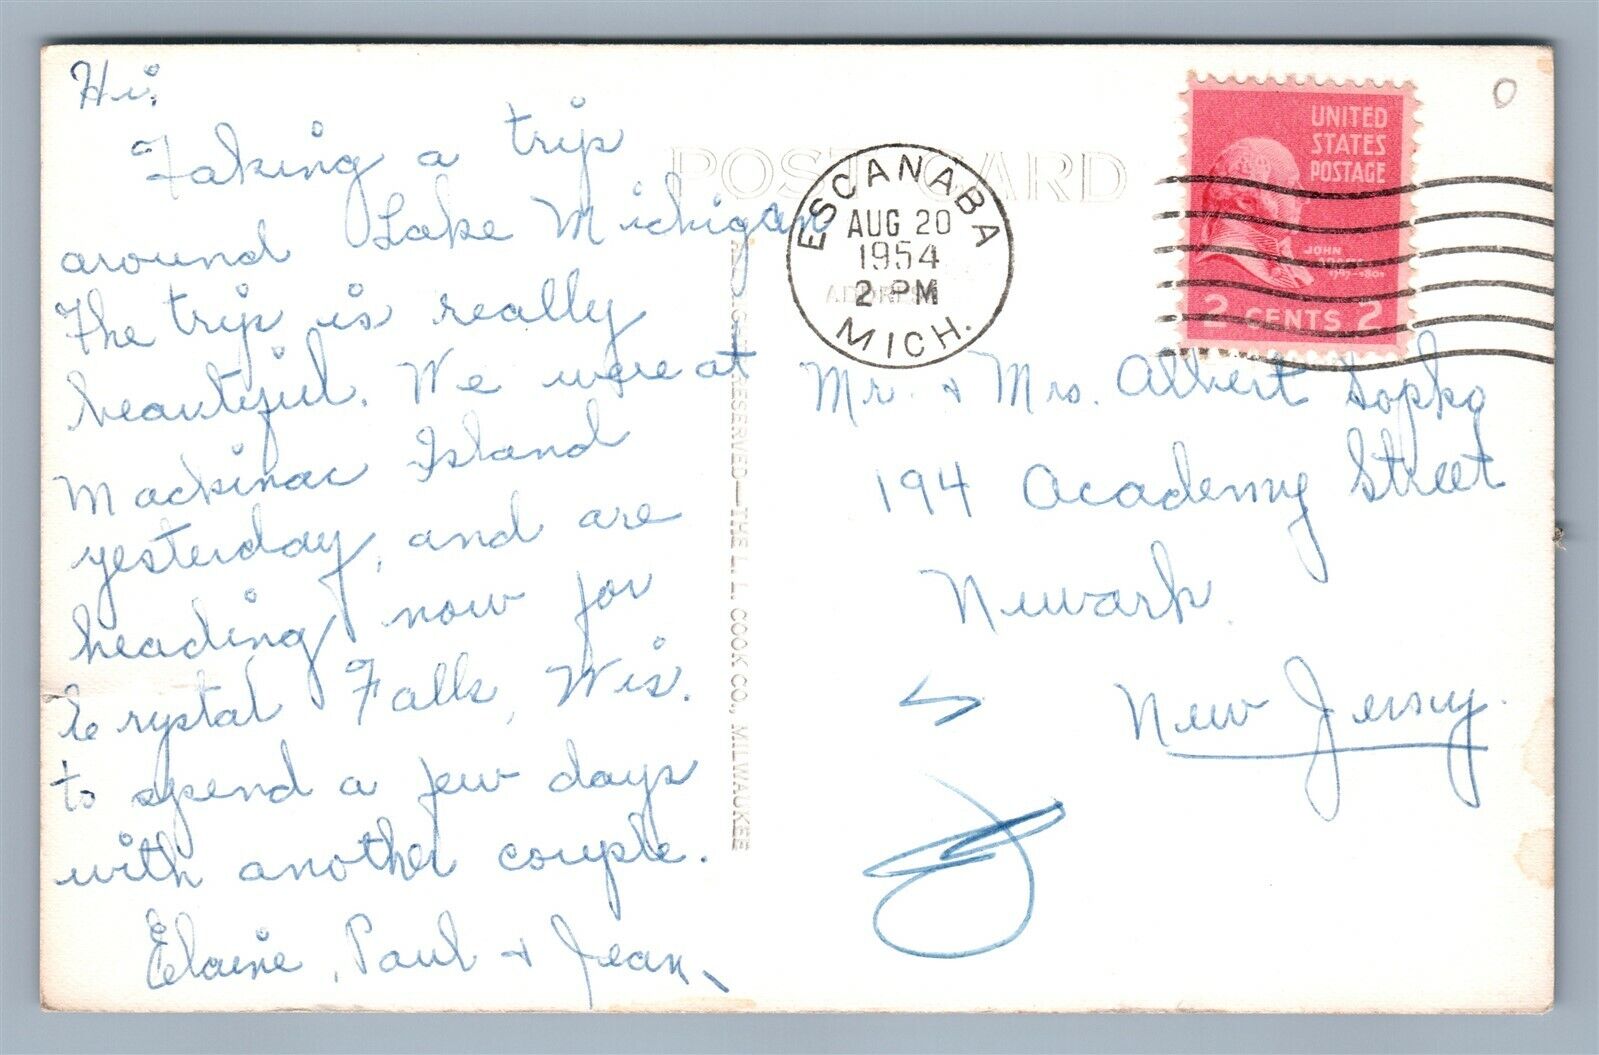 Hi,
Taking a trip
around Lake Michigan
The trip is really
beautiful. We were at
Mackinac Island
yesterday, and are
heading now for
Crystal Falls, Wis.
to spend a few days
with another couple.
Elaine, Paul + Jean
POST CARD
ADDRESS
RESERVED—THE L. L. COOK CO., MILWAUKEE
ESCANABA
AUG 20
1954
2 PM
MICH.
UNITED
STATES
POSTAGE
JOHN
2 CENTS 2
Mr. + Mrs. Albert Sopko
194 Academy Street
Newark
New Jersey.